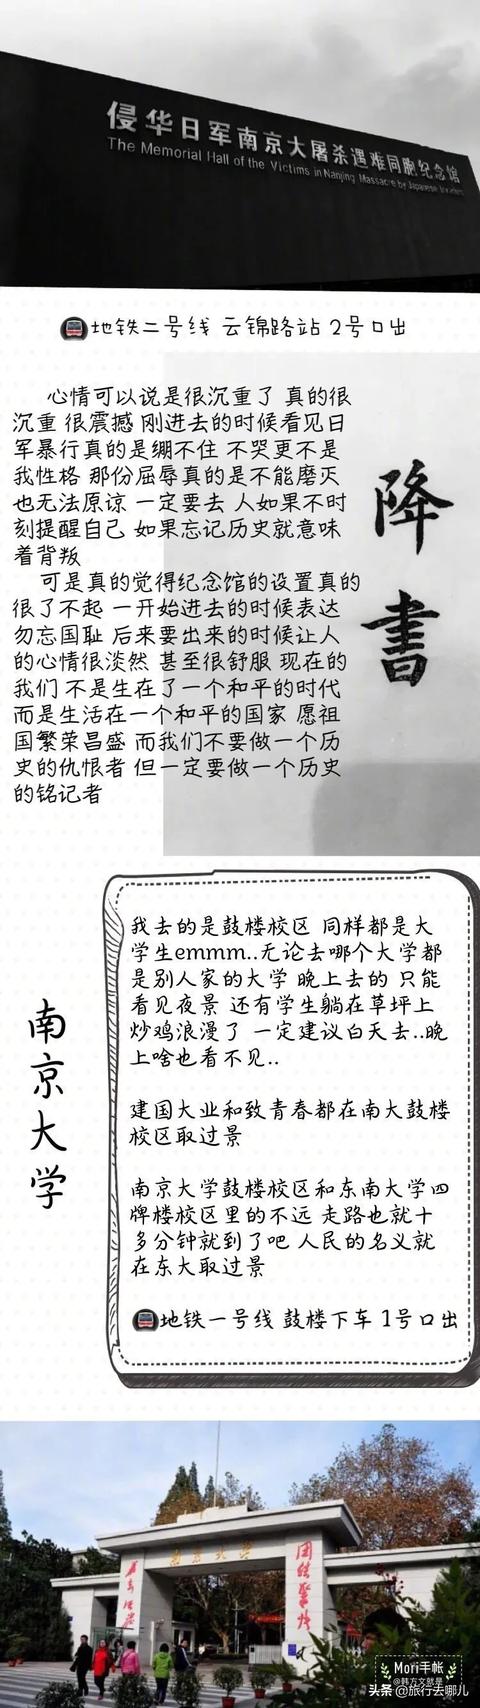 侵华日军南京大屠杀遇难同胞纪念馆
The Memorial Hall of the Victims in Nanjing Massacre by Japanese Invaders
地铁二号线 云锦路站 2号口出
心情可以说是很沉重了 真的很
沉重 很震撼 刚进去的时候看见日
军暴行真的是绷不住 不哭更不是
我性格 那份屈辱真的是不能磨灭
也无法原谅 一定要去 人如果不时
刻提醒自己 如果忘记历史就意味
着背叛
可是真的觉得纪念馆的设置真的
很了不起 一开始进去的时候表达
勿忘国耻 后来要出来的时候让人
的心情很淡然 甚至很舒服 现在的
我们 不是生在了一个和平的时代
而是生活在一个和平的国家 愿祖
国繁荣昌盛 而我们不要做一个历
史的仇恨者 但一定要做一个历史
的铭记者
降書
南京大学
我去的是鼓楼校区 同样都是大
学生emmm..无论去哪个大学都
是别人家的大学 晚上去的 只能
看见夜景 还有学生躺在草坪上
炒鸡浪漫了 一定建议白天去..晚
上啥也看不见..
建国大业和致青春都在南大鼓楼
校区取过景
南京大学鼓楼校区和东南大学四
牌楼校区里的不远 走路也就十
多分钟就到了吧 人民的名义就
在东大取过景
地铁一号线 鼓楼下车 1号口出
南京大学
Mori手帐
@韩方文就是
头条@旅行去哪儿